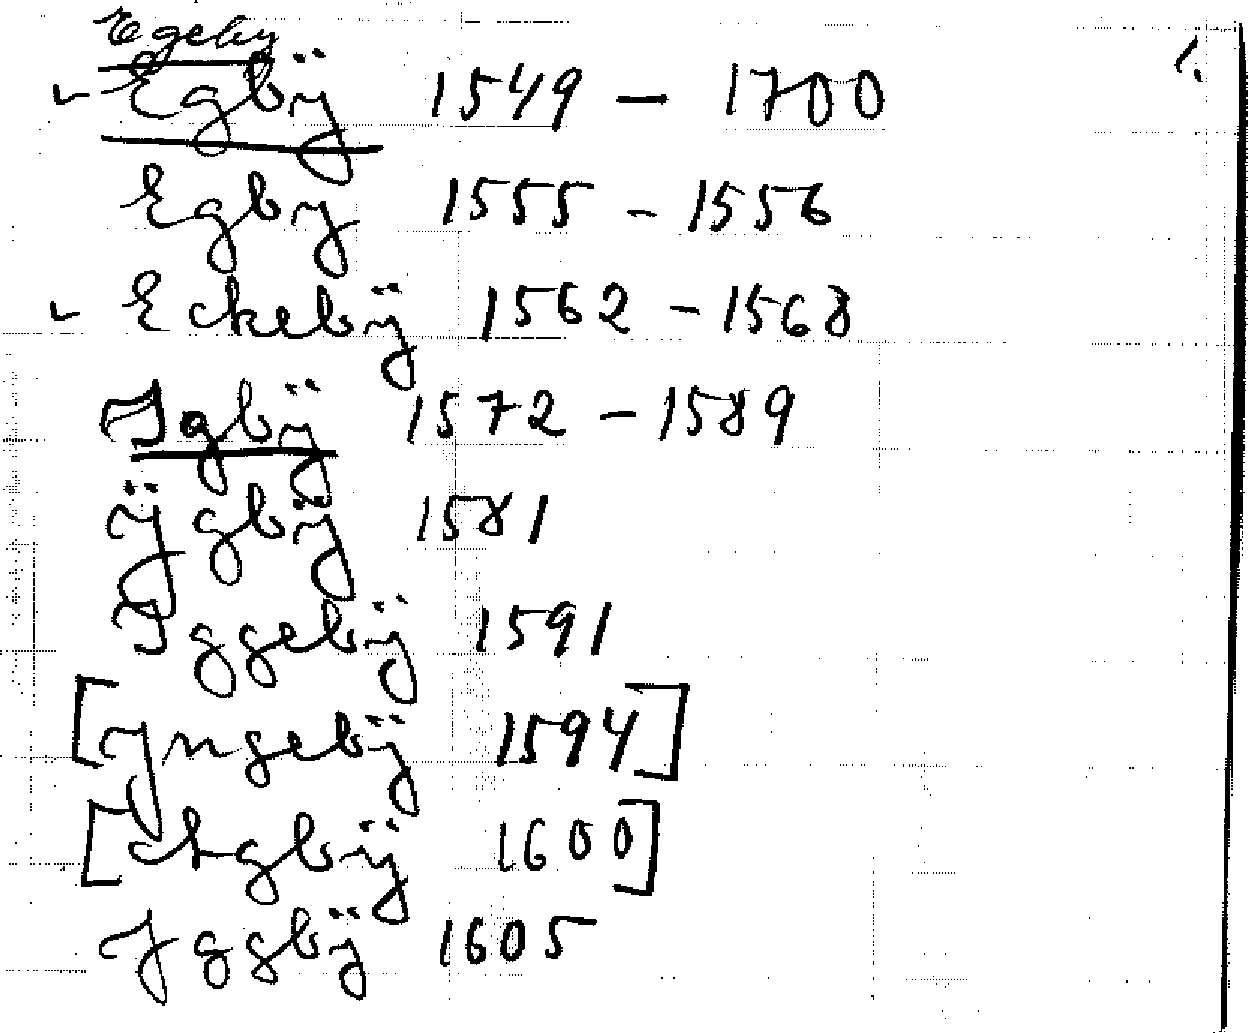 Egeby
1.
Egbÿ 1549 - 1700
Egby 1555 - 1556
Eckebÿ 1562 - 1568
Igbÿ 1572 - 1589
ÿgbÿ 1581
Iggebÿ 1591
[Yngebÿ 1594]
[Ahgbÿ 1600]
Jggbÿ 1605